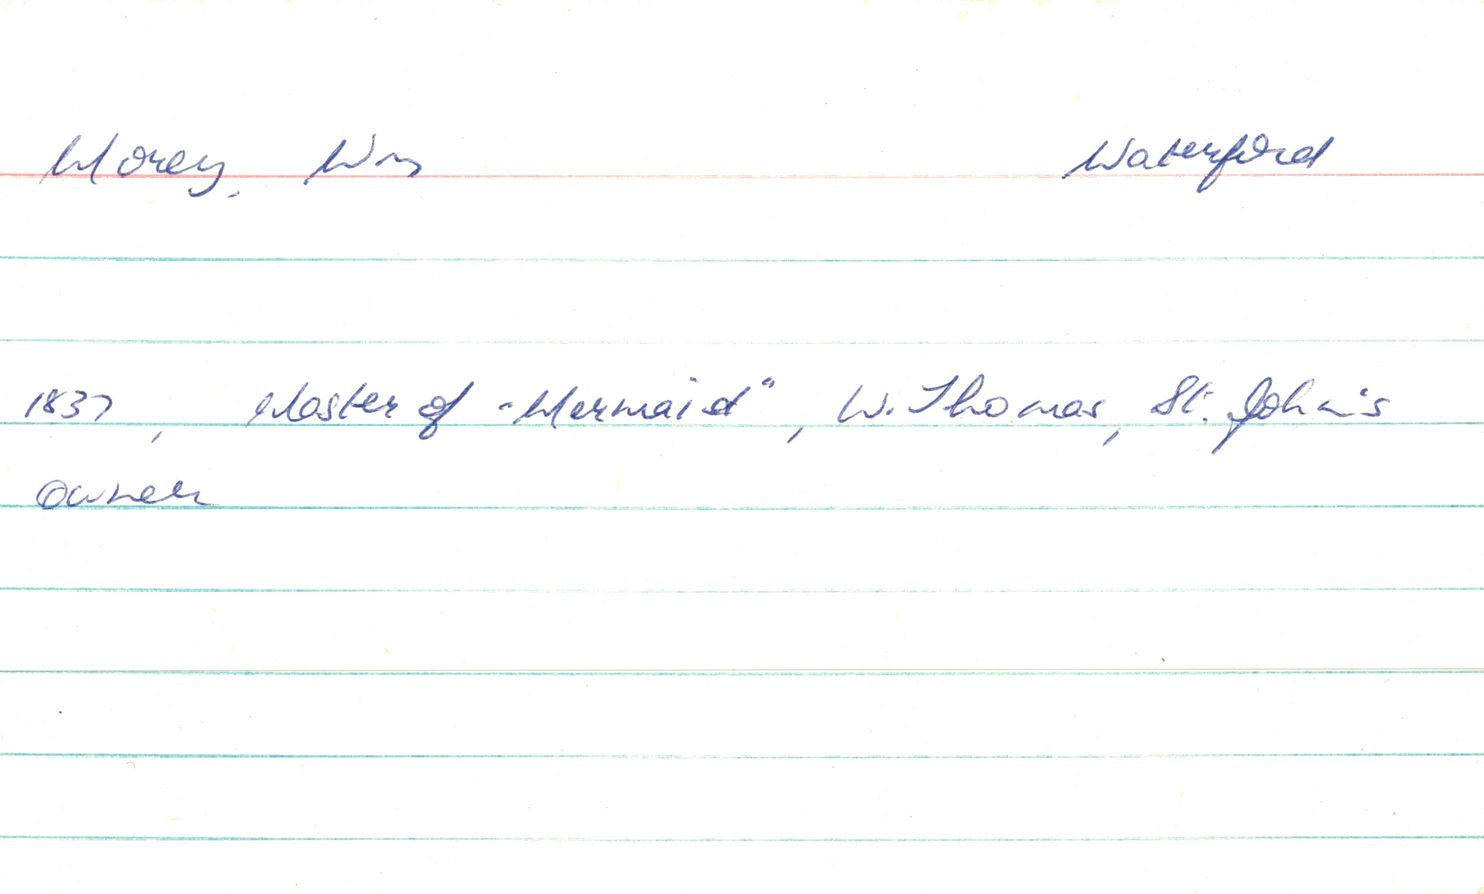 Morey, Wm Waterford
1837, Master of "Mermaid", W. Thomas, St. John's
owner